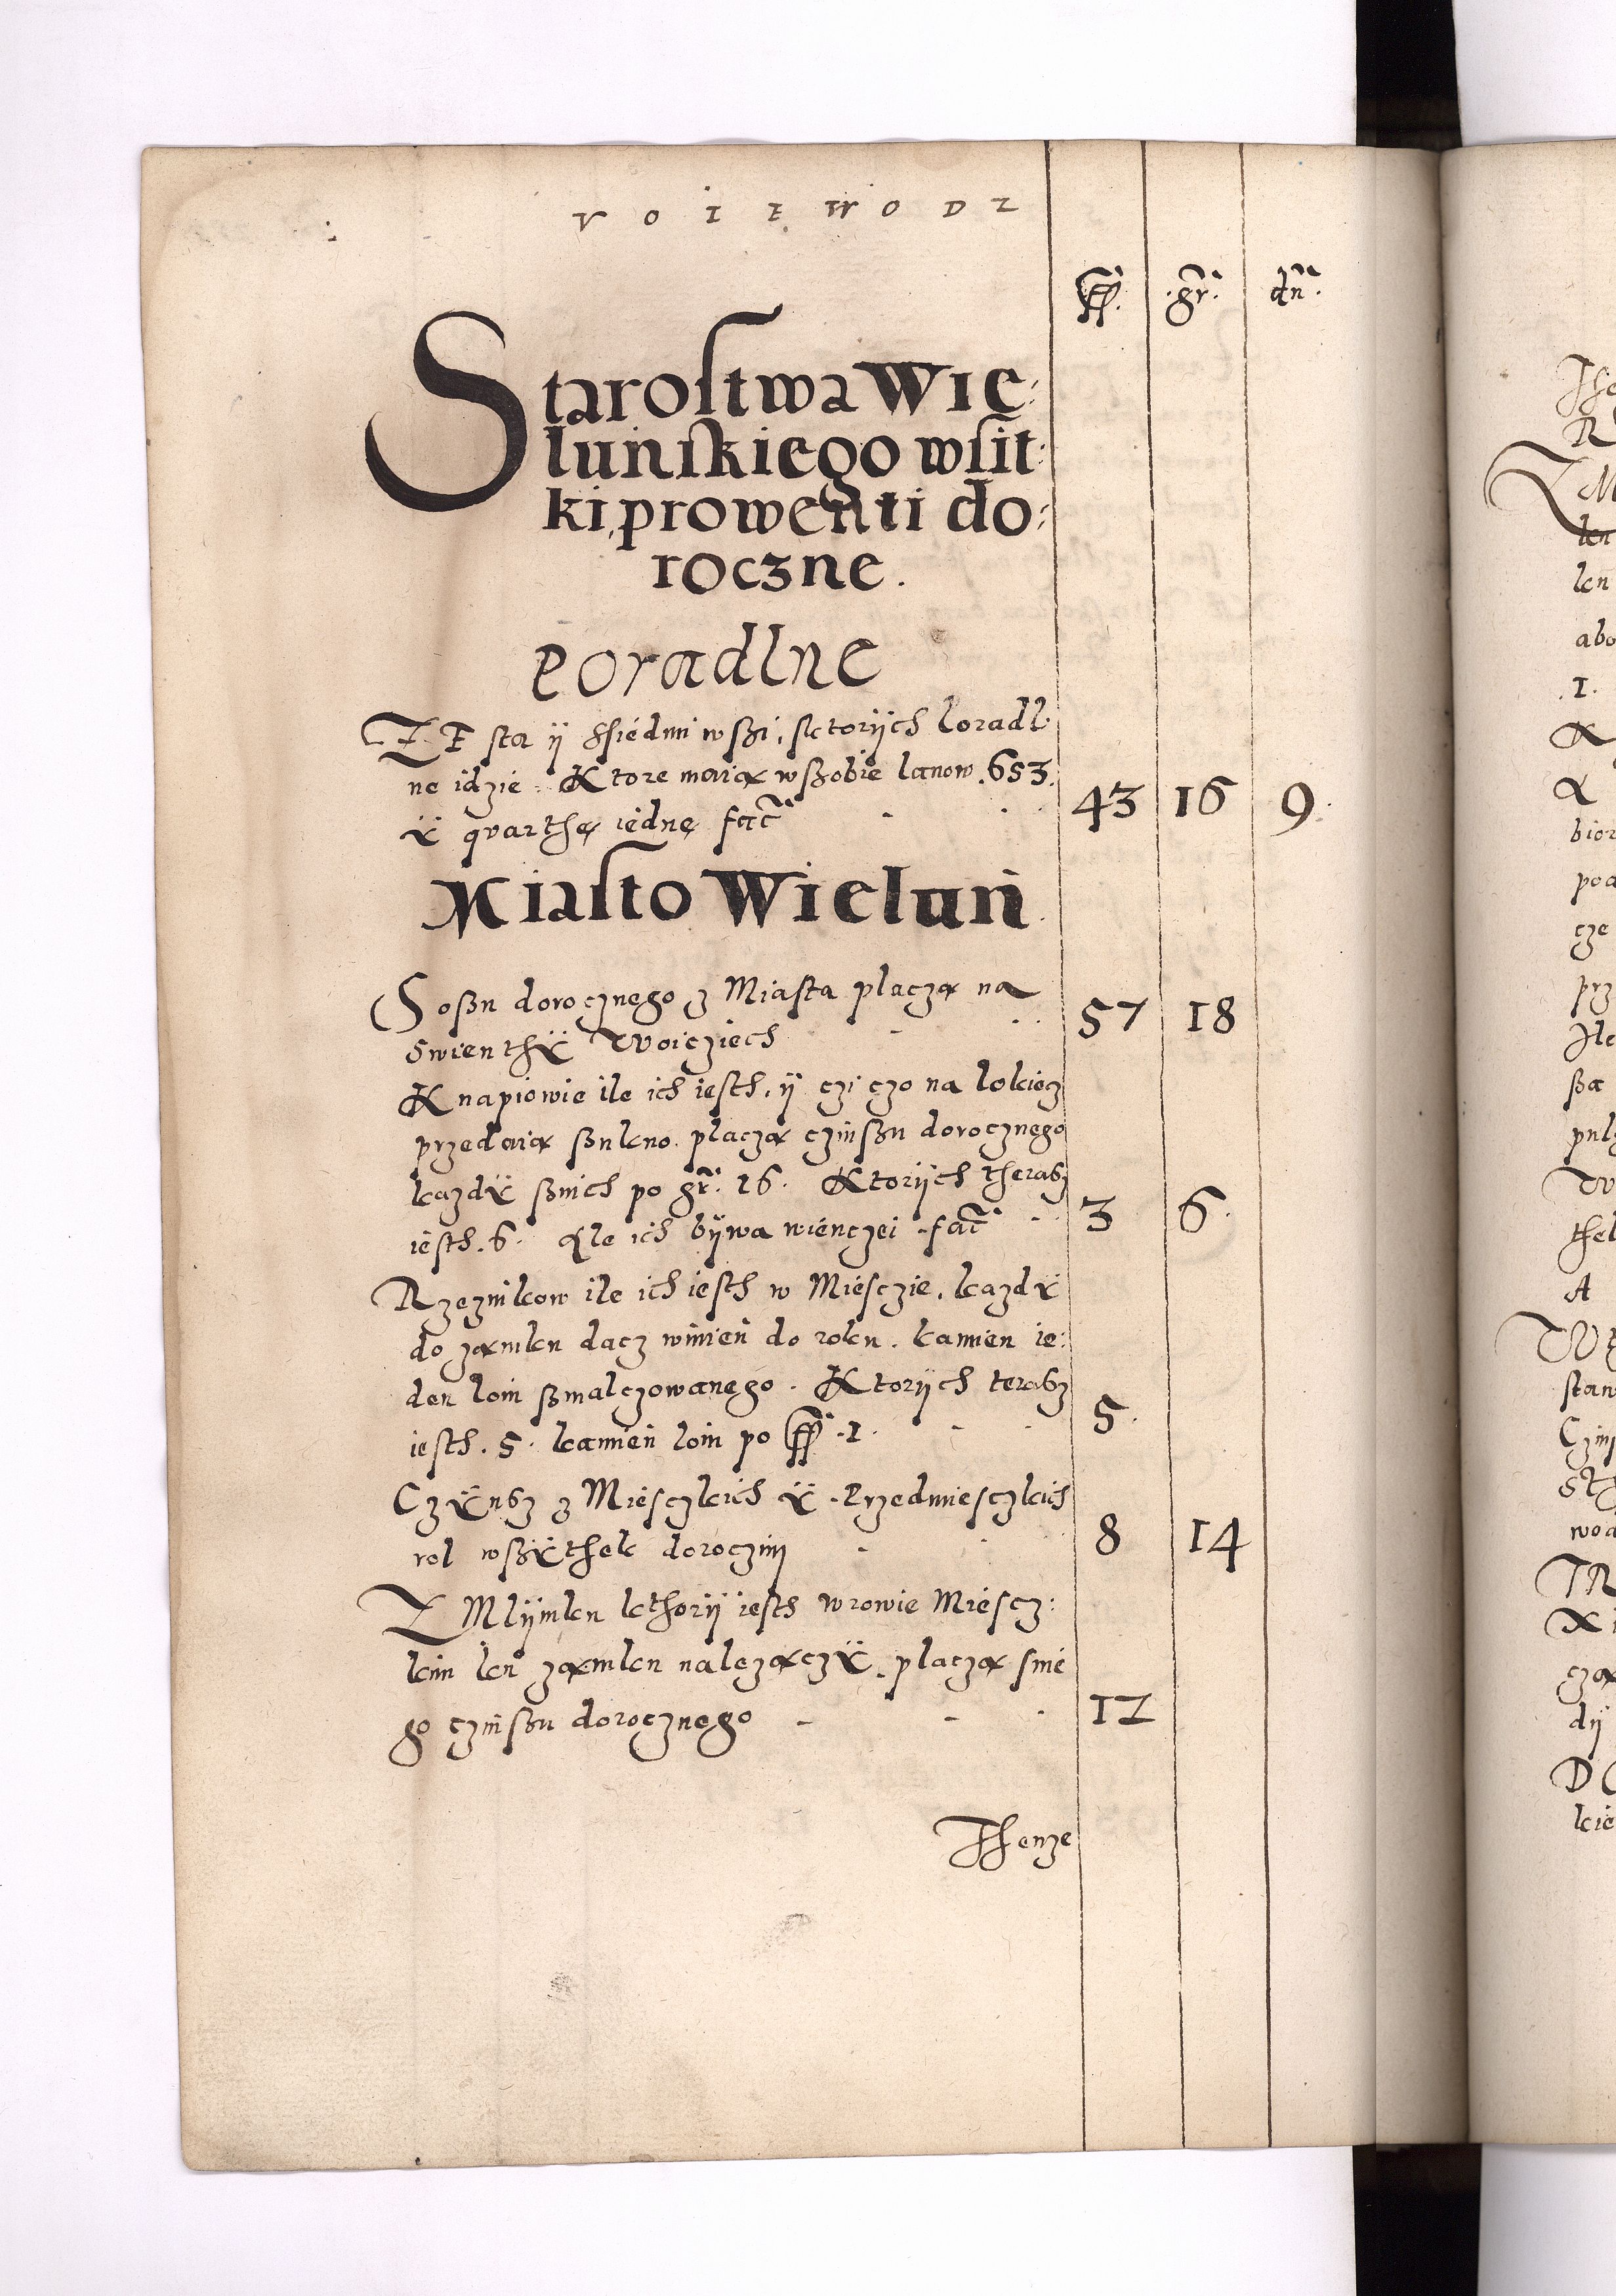 VOIEWODZ
ff. gr. dn.
Starostwa Wie:
luńskiego wsit:
ki, prowenti do:
roczne.
Poradlne
ZE sta ij ssiedmi wszi, sktorÿch poradl:
ne idzie. Ktore maią wszobie lanow. 653.
ẏ quarthę iednę fac̃ 43 16 9.
Miasto Wieluń
Soszu dorocznego z Miasta placzą na
Swienthẏ Woicziech 57 18
Knapiowie ile ich iesth, ij czi czo na lokiecz
przedaią szukno. placzą czinszu dorocznego
kazdẏ sznich po gr. 16. Ktorÿch therasz
iesth. 6. Ale ich bÿwa wienczei. fac̃ 3 6.
Rzeznikow ile ich iesth w Miesczie, kazdẏ
do zamku dacz winien do roku. kamien ie:
den loiu szmalczowanego. Ktorÿch terasz
iesth. 5. kamień loiu po ff. 1. 5.
Czẏnsz z Miesczkich ẏ Przedmiesczkich
rol wszẏthek doroczni 8 14
Z Mlÿnku kthorÿ iesth w rowie Miescz:
kim ku zamku należączẏ, placzą snie
go czinszu dorocznego 12
Thenze